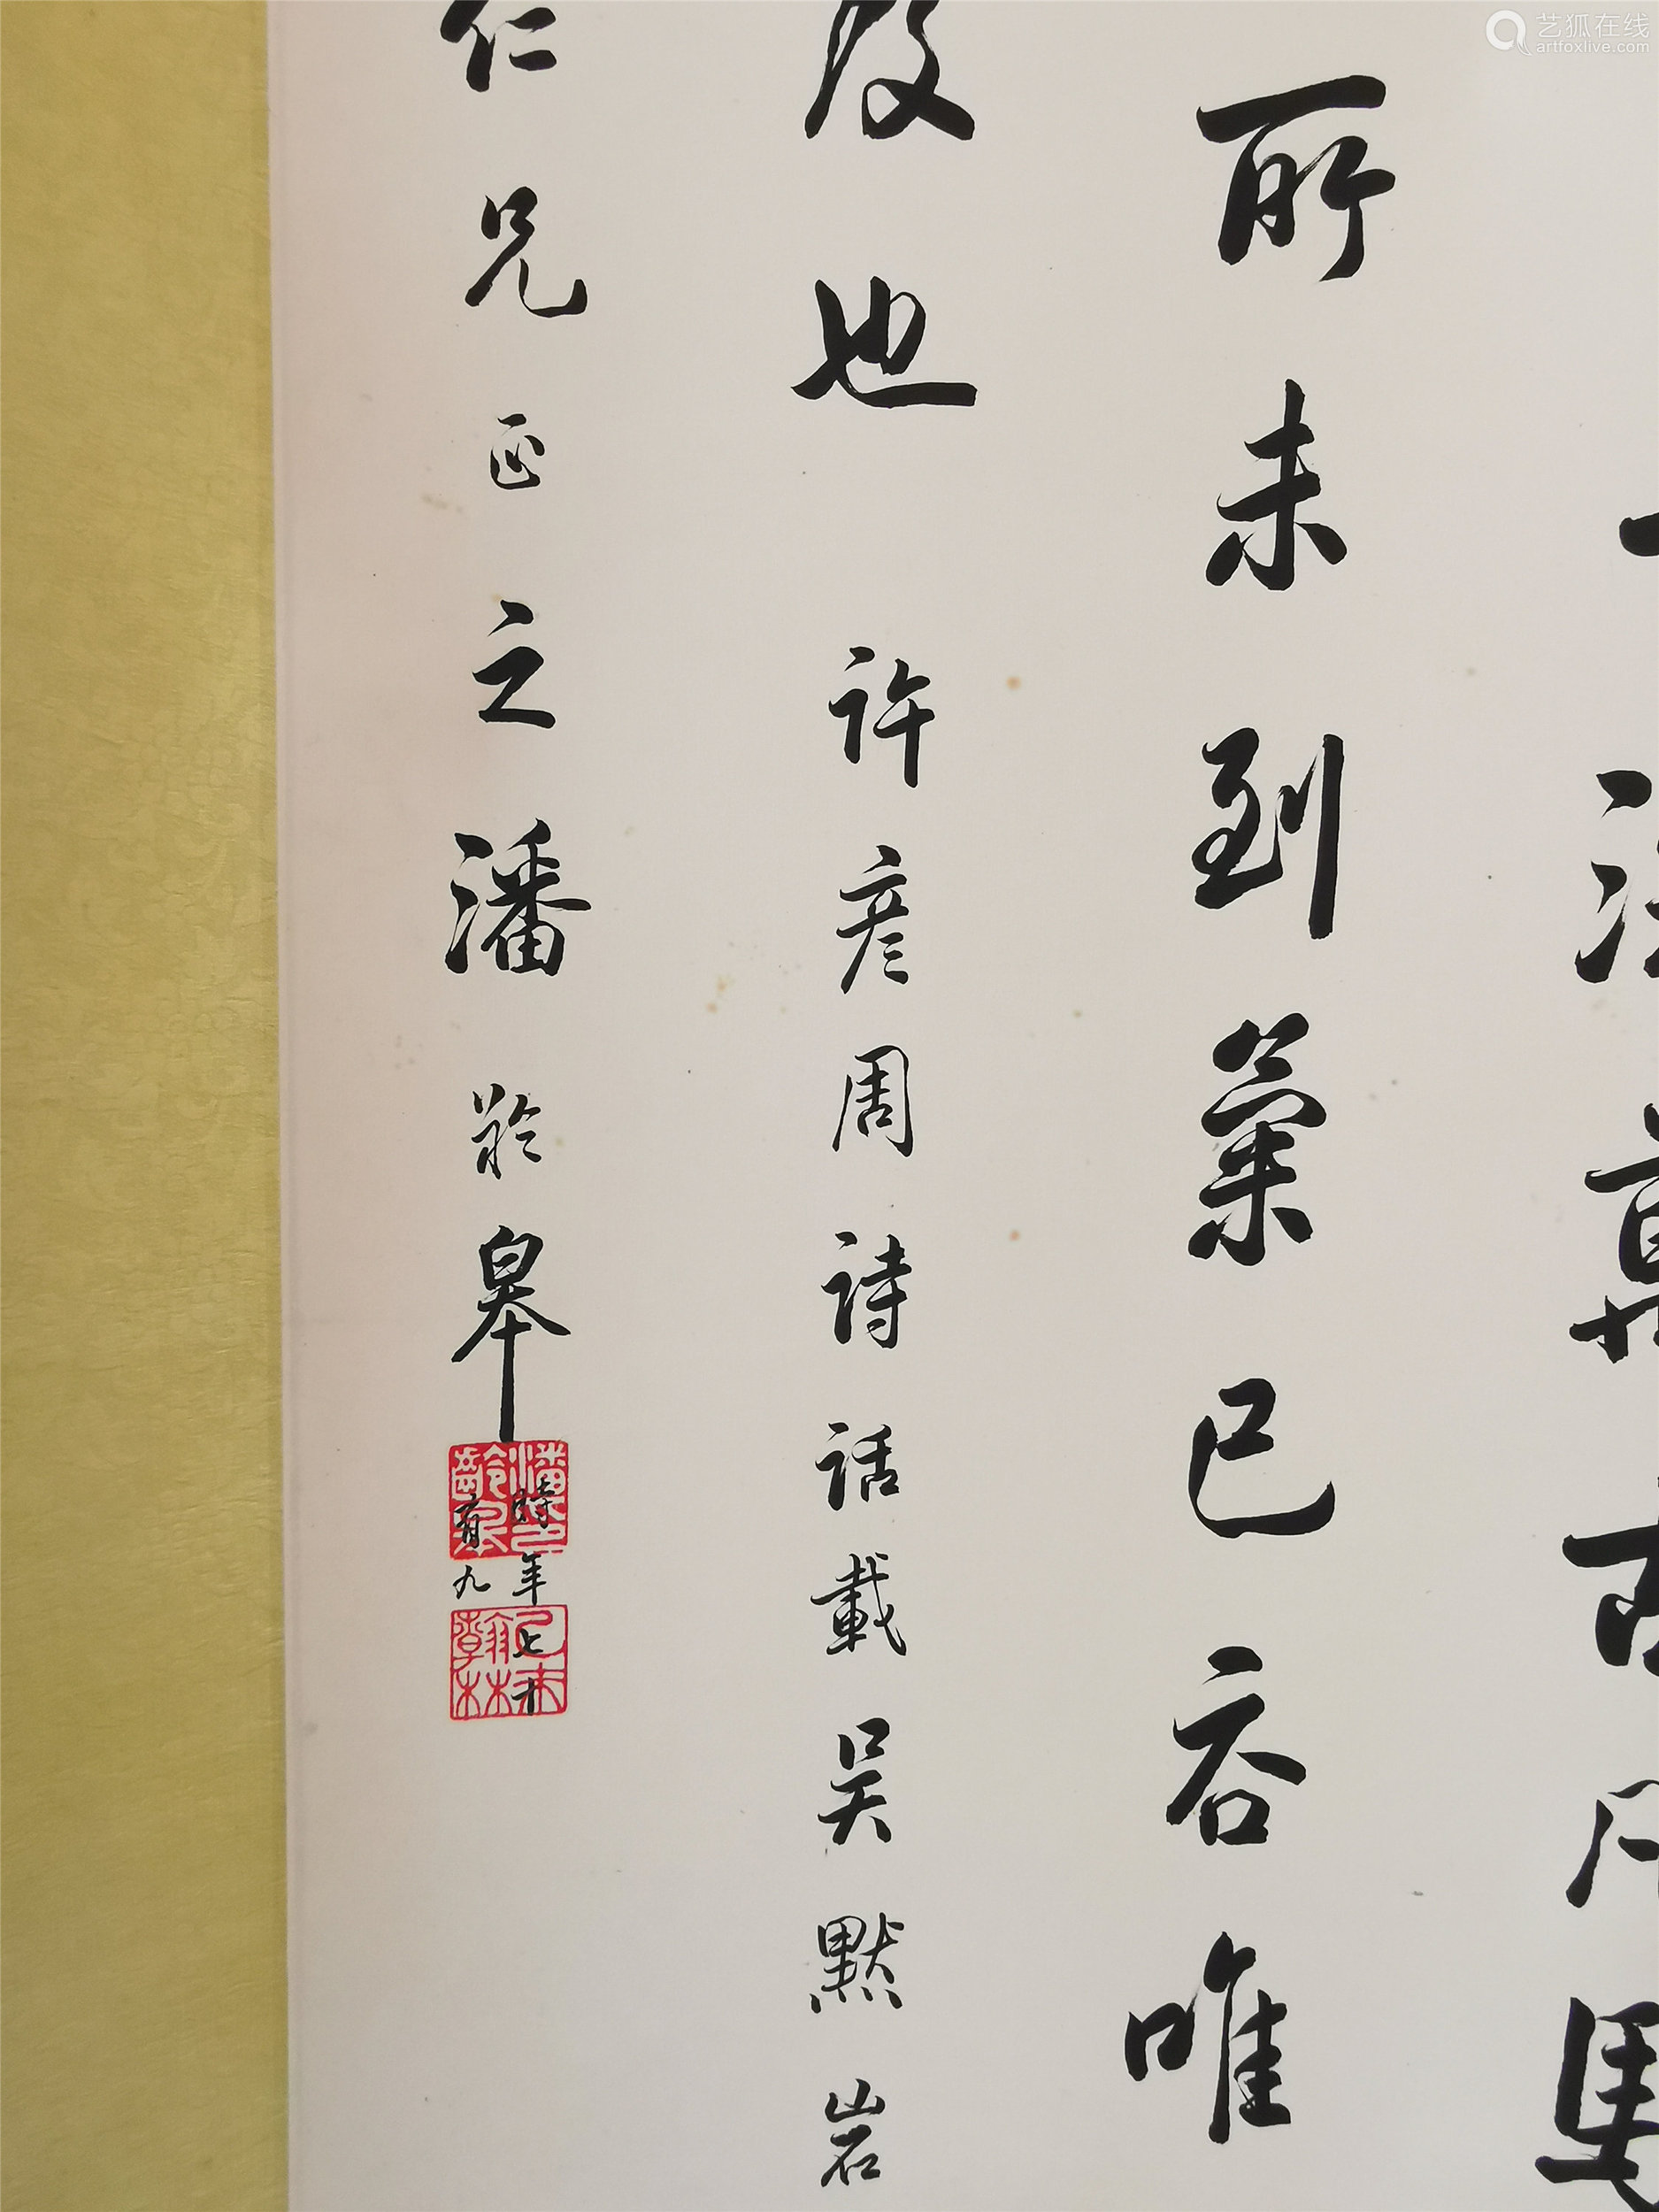 艺狐在线
artfoxlive.com
所未到氣已吞唯
及也 許彥周詩話載吳默岩
仁兄正之潘齡皋
時年七十
有九
潘印齡皋
乙未翰林